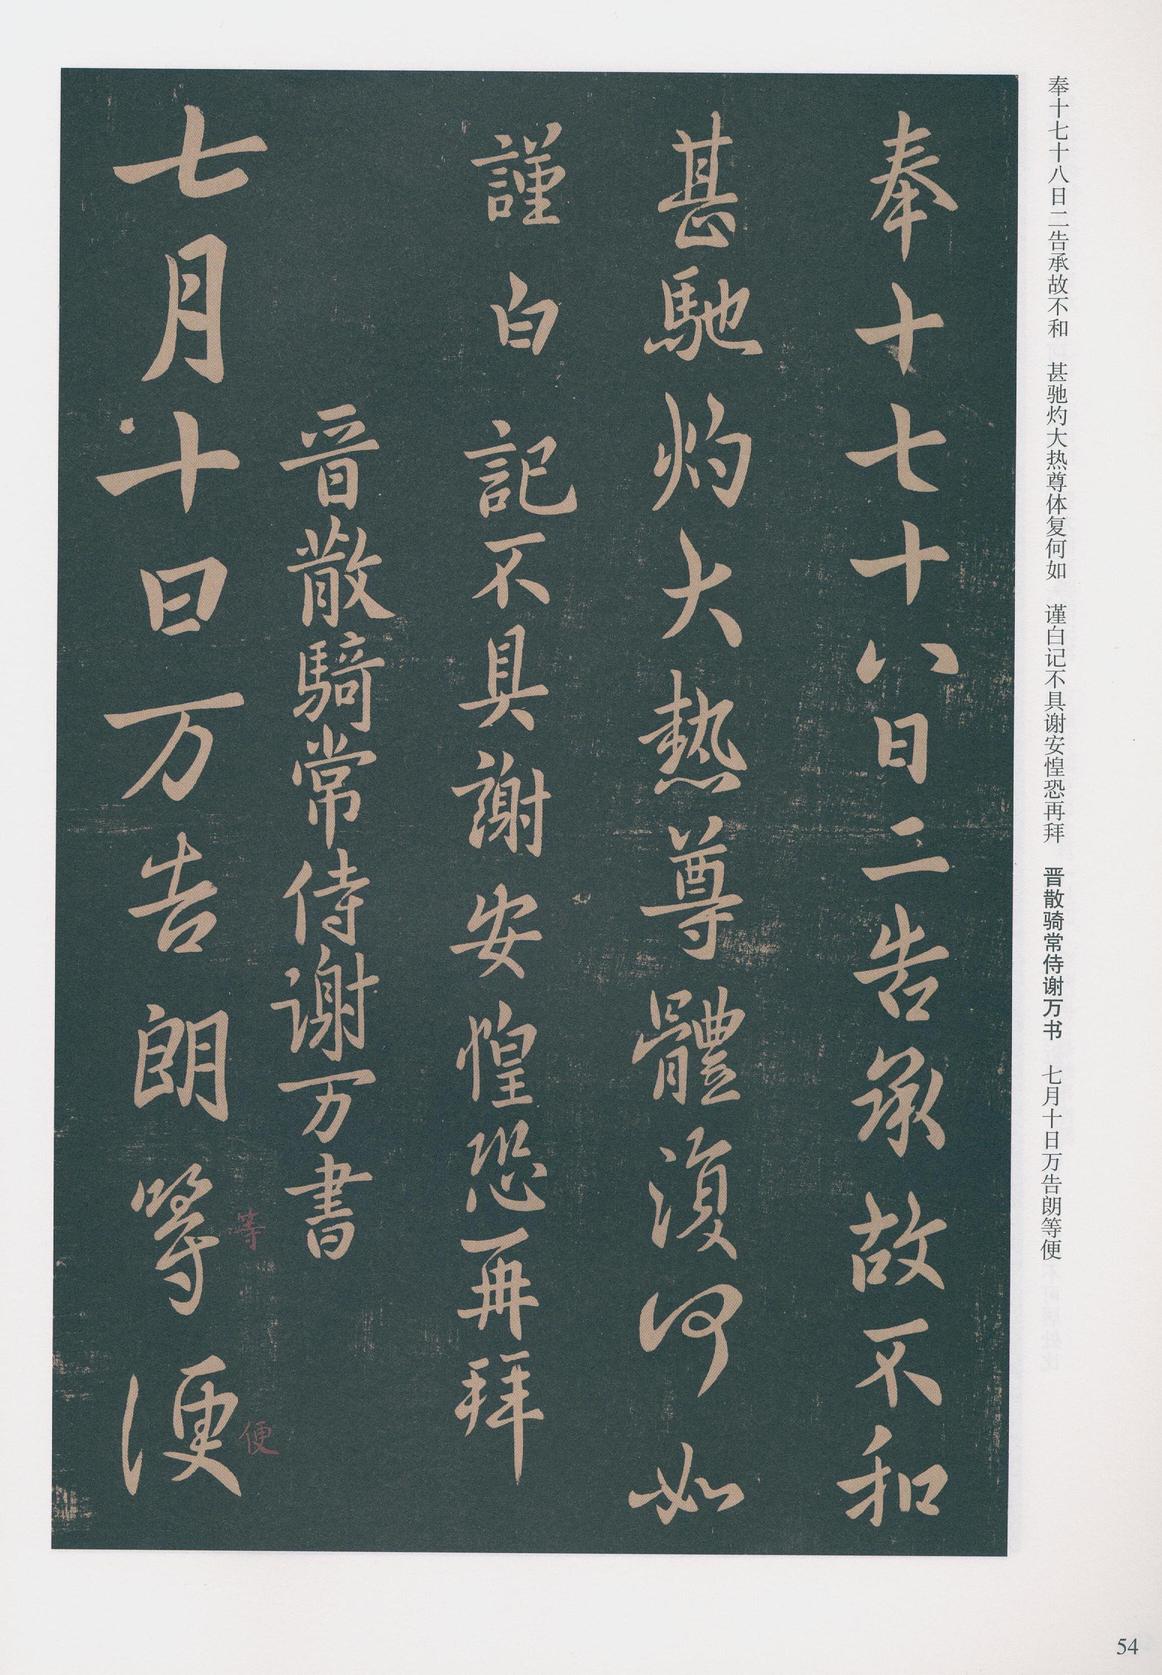 奉十七十八日二告承故不和　甚驰灼大热尊体复何如　谨白记不具谢安惶恐再拜　晋散骑常侍谢万书　七月十日万告朗等便
奉十七十八日二告承故不和
甚馳灼大熱尊體復何如
謹白記不具謝安惶恐再拜
晋散騎常侍謝万書
七月十日万告朗等便
等
便
54